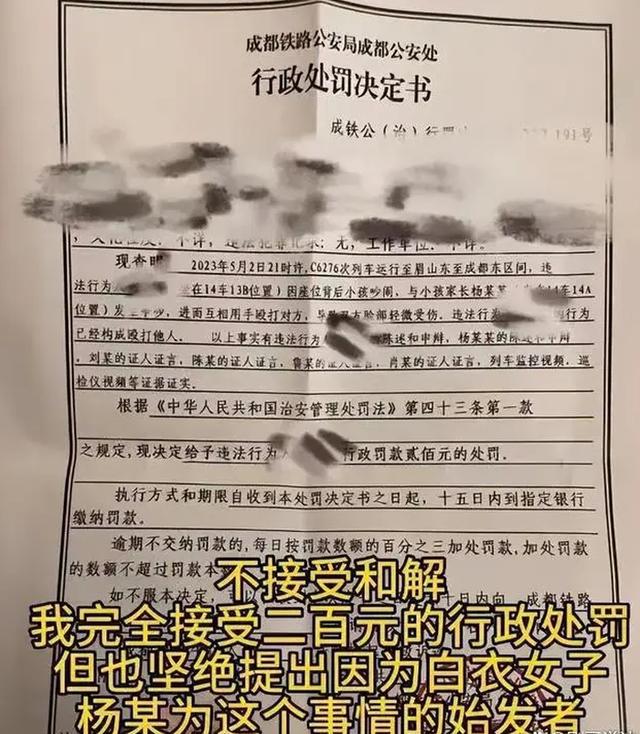 成都铁路公安局成都公安处
行政处罚决定书
成铁公(治)行罚 191号
文化程度:不详,违法犯罪记录:无,工作单位:不详。
现查明 2023年5月2日21时许,C6276次列车运行至眉山东至成都东区间,违
法行为 坐在14车13B位置)因座位背后小孩吵闹,与小孩家长杨某某 14车14A
位置)发生 ,进而互相用手殴打对方,导致双方脸部轻微受伤。违法行为 的行为
已经构成殴打他人。 以上事实有违法行为 陈述和申辩,杨某某的陈述和申辩,
刘某的证人证言,陈某的证人证言,鲁某的证人证言,肖某的证人证言,列车监控视频,巡
检仪视频等证据证实。
根据《中华人民共和国治安管理处罚法》第四十三条第一款
之规定,现决定给予违法行为人 行政罚款贰佰元的处罚.
执行方式和期限自收到本处罚决定书之日起,十五日内到指定银行
缴纳罚款。
逾期不交纳罚款的,每日按罚款数额的百分之三加处罚款,加处罚款
的数额不超过罚款本
如不服本决定, 日内向 成都铁路
不接受和解
我完全接受二百元的行政处罚
但也坚绝提出因为白衣女子
杨某为这个事情的始发者